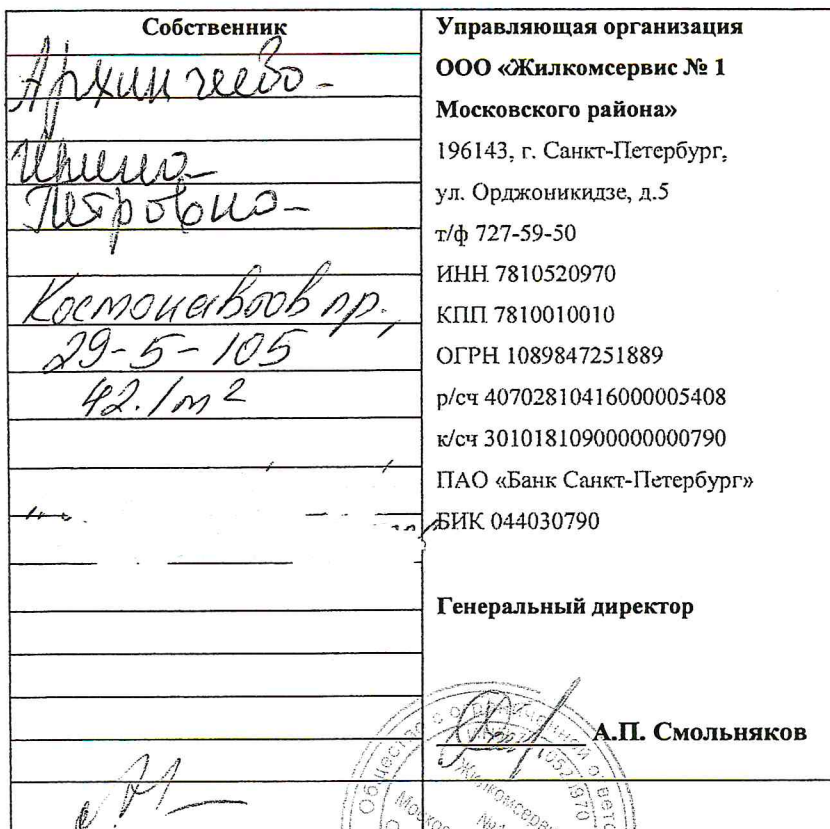 Собственник
Архипчеева
Ирина
Петровна
Космонавтов пр.,
29-5-105
42.1 м²
Управляющая организация
ООО «Жилкомсервис № 1
Московского района»
196143, г. Санкт-Петербург,
ул. Орджоникидзе, д.5
т/ф 727-59-50
ИНН 7810520970
КПП 7810010010
ОГРН 1089847251889
р/сч 40702810416000005408
к/сч 30101810900000000790
ПАО «Банк Санкт-Петербург»
БИК 044030790
Генеральный директор
А.П. Смольняков
Общество с ограниченной ответс
Жилкомсервис
№1